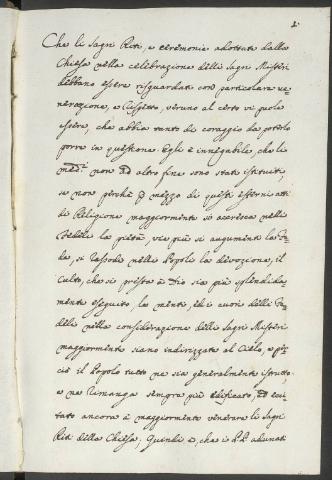 1.
Che li Sagri Riti, e ceremonie adottate dalla
Chiesa nella celebrazione delli Sagri Misterj
debbano essere risguardati con particolare ve-
nerazione, e Rispetto, veruno al certo vi puole
essere, che abbia tanto di coraggio da poterlo
porre in questione. Egli è innegabile, che li
med.i non ad altro fine sono stati istituiti,
se non perchè p mezzo di questi esterni atti
di Religione maggiormente si accresca nelli
Fedeli la pietà, vie più si augumenti la Fe-
de, si Rassodi nelli Popoli la devozione, il
Culto, che si presta à Dio sia più splendida-
mente eseguito, le menti, ed i cuori delli Fe-
deli nella considerazione delli Sagri Misterj
maggiormente siano indirizzate al Cielo, e per-
ciò il Popolo tutto ne sia generalmente istrutto,
e ne Rimanga sempre più edificato, ed ecci-
tato ancora à maggiormente venerare li Sagri
Riti della Chiesa; Quindi è, che i PP. adunati